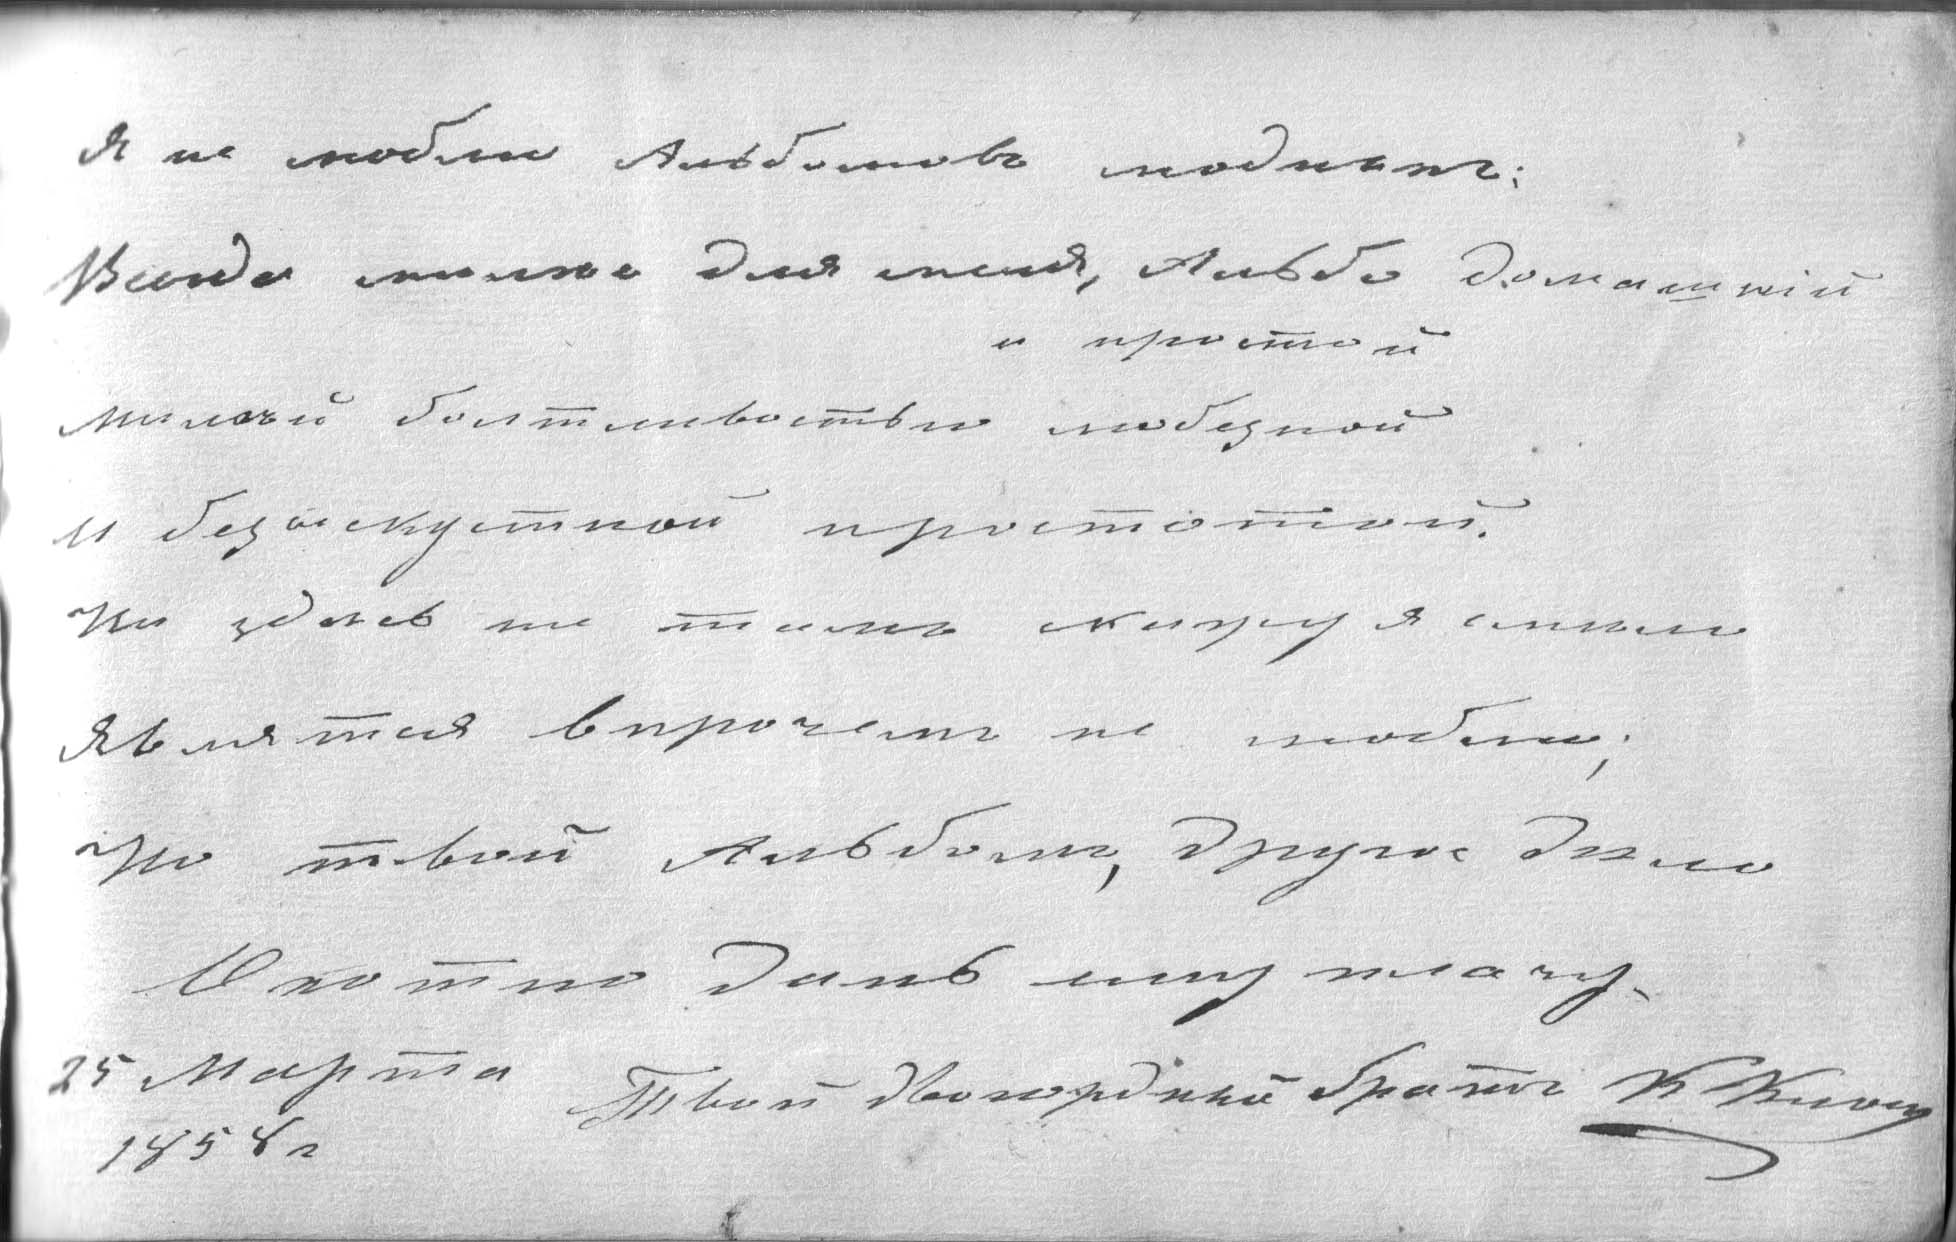 Я не люблю Альбомовъ модныхъ:
Всегда милѣе для меня, Альбо домашній
и простой
милый болтливостью любезной
И безыскустной простотой.
Ни здѣсь ни тамъ скажу я смѣло
Являтся впрочемъ не люблю;
Но твой Альбомъ, другое дѣло
Охотно дань ему плачу.
25 Марта Твой двоюродный братъ К
1858 г